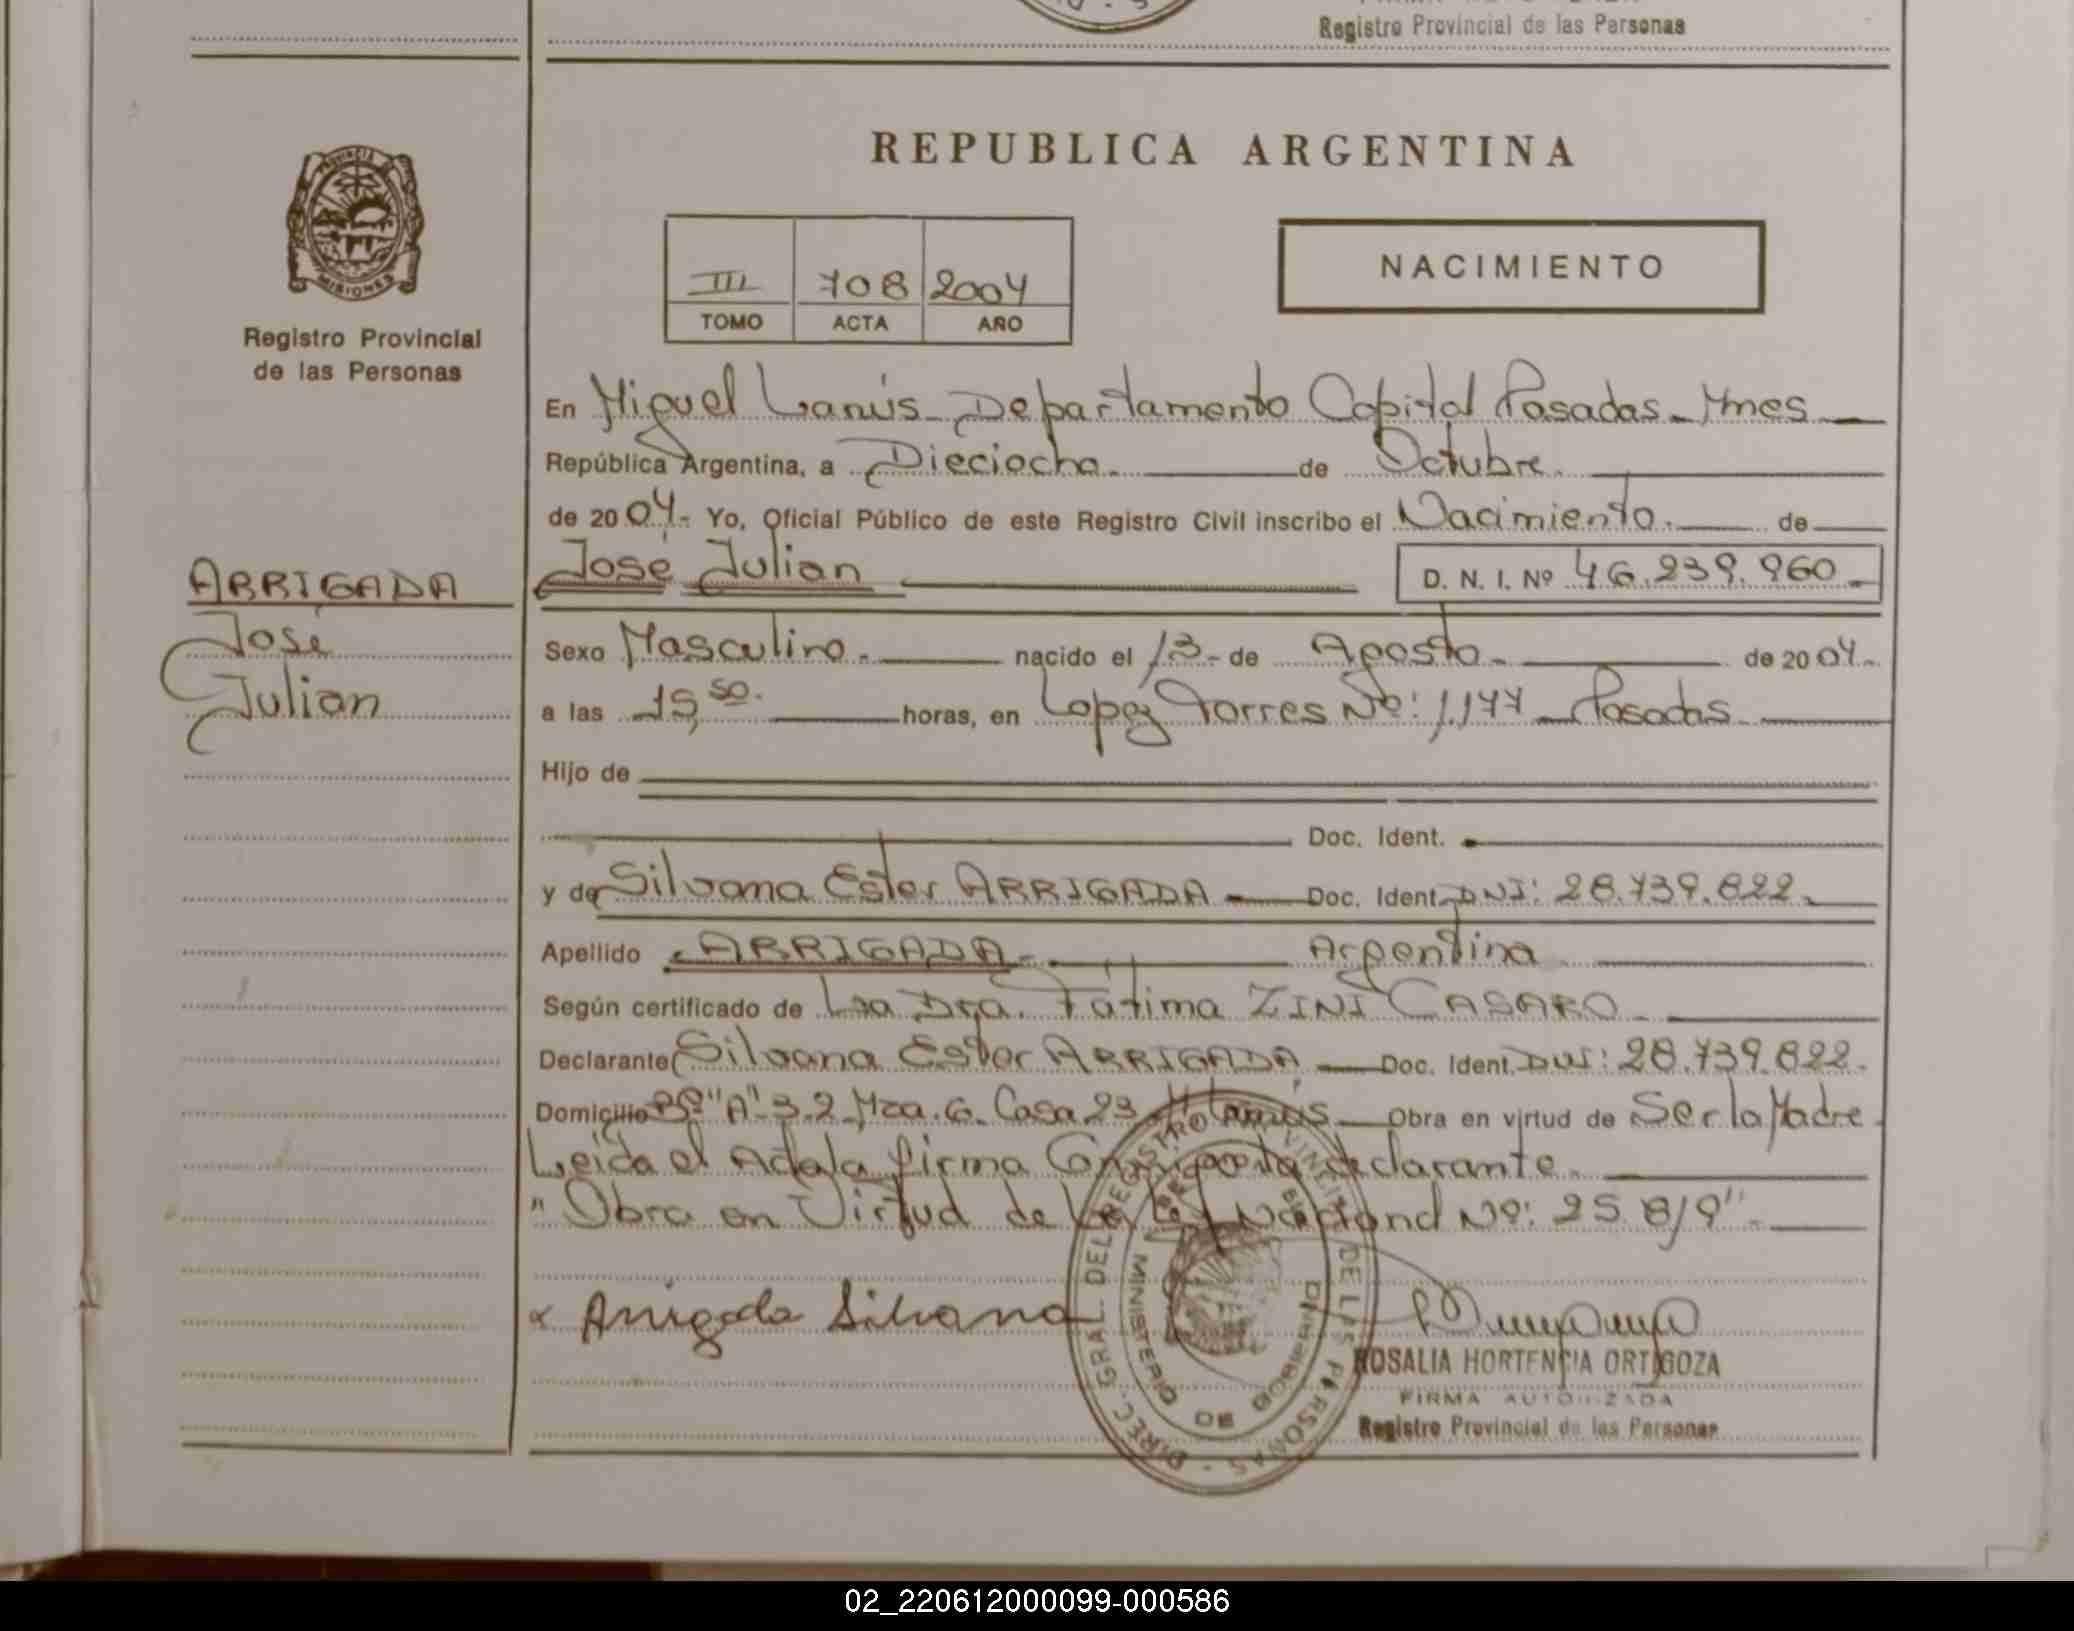 Registro Provincial de las Personas
REPUBLICA ARGENTINA
PROVINCIA DE
MISIONES
Registro Provincial
de las Personas
III 708 2004
TOMO ACTA AÑO
NACIMIENTO
En Miguel Lanús - Departamento Capital Posadas - Mnes
República Argentina, a Dieciocho. de Octubre.
de 2004.- Yo, Oficial Público de este Registro Civil inscribo el Nacimiento. de
José Julian D. N. I. Nº 46.239.960.
ARRIGADA
José
Julian
Sexo Masculino.- nacido el 13 - de Agosto - de 2004.-
a las 15,50. horas, en Lopez Torres Nº: 1.177 - Posadas
Hijo de
Doc. Ident.
y de Silvana Ester ARRIGADA - Doc. Ident. DNI: 28.739.822.
Apellido ARRIGADA - Argentina
Según certificado de La Dra. Fatima ZINI CASARO -
Declarante Silvana Ester ARRIGADA - Doc. Ident. DNI: 28.739.822.
Domicilio Bº "A" 3.2 Mza. 6. Casa 23 M. Lanús - Obra en virtud de Ser la Madre
Leida el Acta la firma Conmigo la declarante.
" Obra en Virtud de Ley Nacional Nº: 25 819" -
Arrigada Silvana
DIREC. GRAL. DEL REGISTRO PROVINCIAL DE LAS PERSONAS
MINISTERIO DE GOBIERNO
ROSALIA HORTENCIA ORTIGOZA
FIRMA AUTORIZADA
Registro Provincial de las Personas
02_220612000099-000586